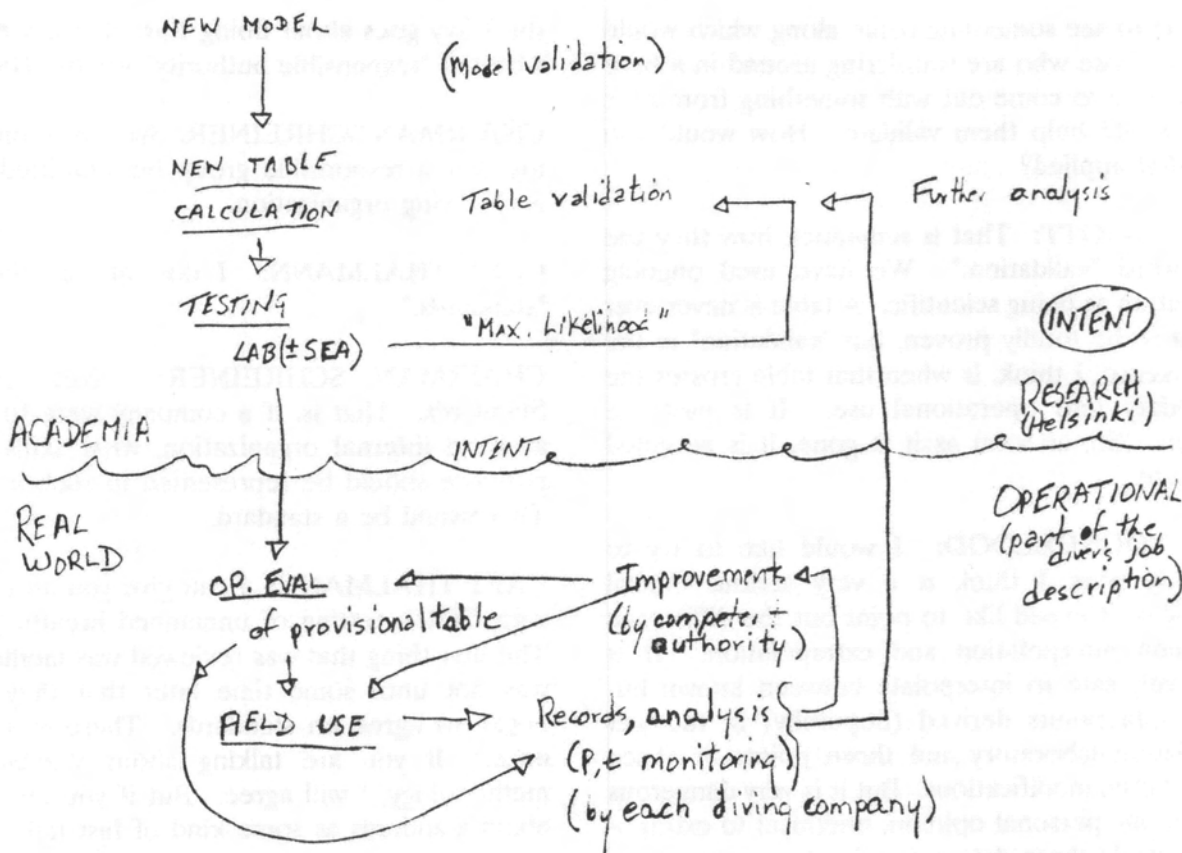 NEW MODEL
(Model validation)
NEW TABLE
CALCULATION
Table validation
Further analysis
TESTING
LAB (± SEA)
"Max. Likelihood"
INTENT
RESEARCH
(Helsinki)
ACADEMIA
INTENT
REAL
WORLD
OPERATIONAL
(part of the
diver's job
description)
OP. EVAL
of provisional table
Improvements
(by competent
authority)
FIELD USE
Records, analysis
(P,t monitoring)
(by each diving company)